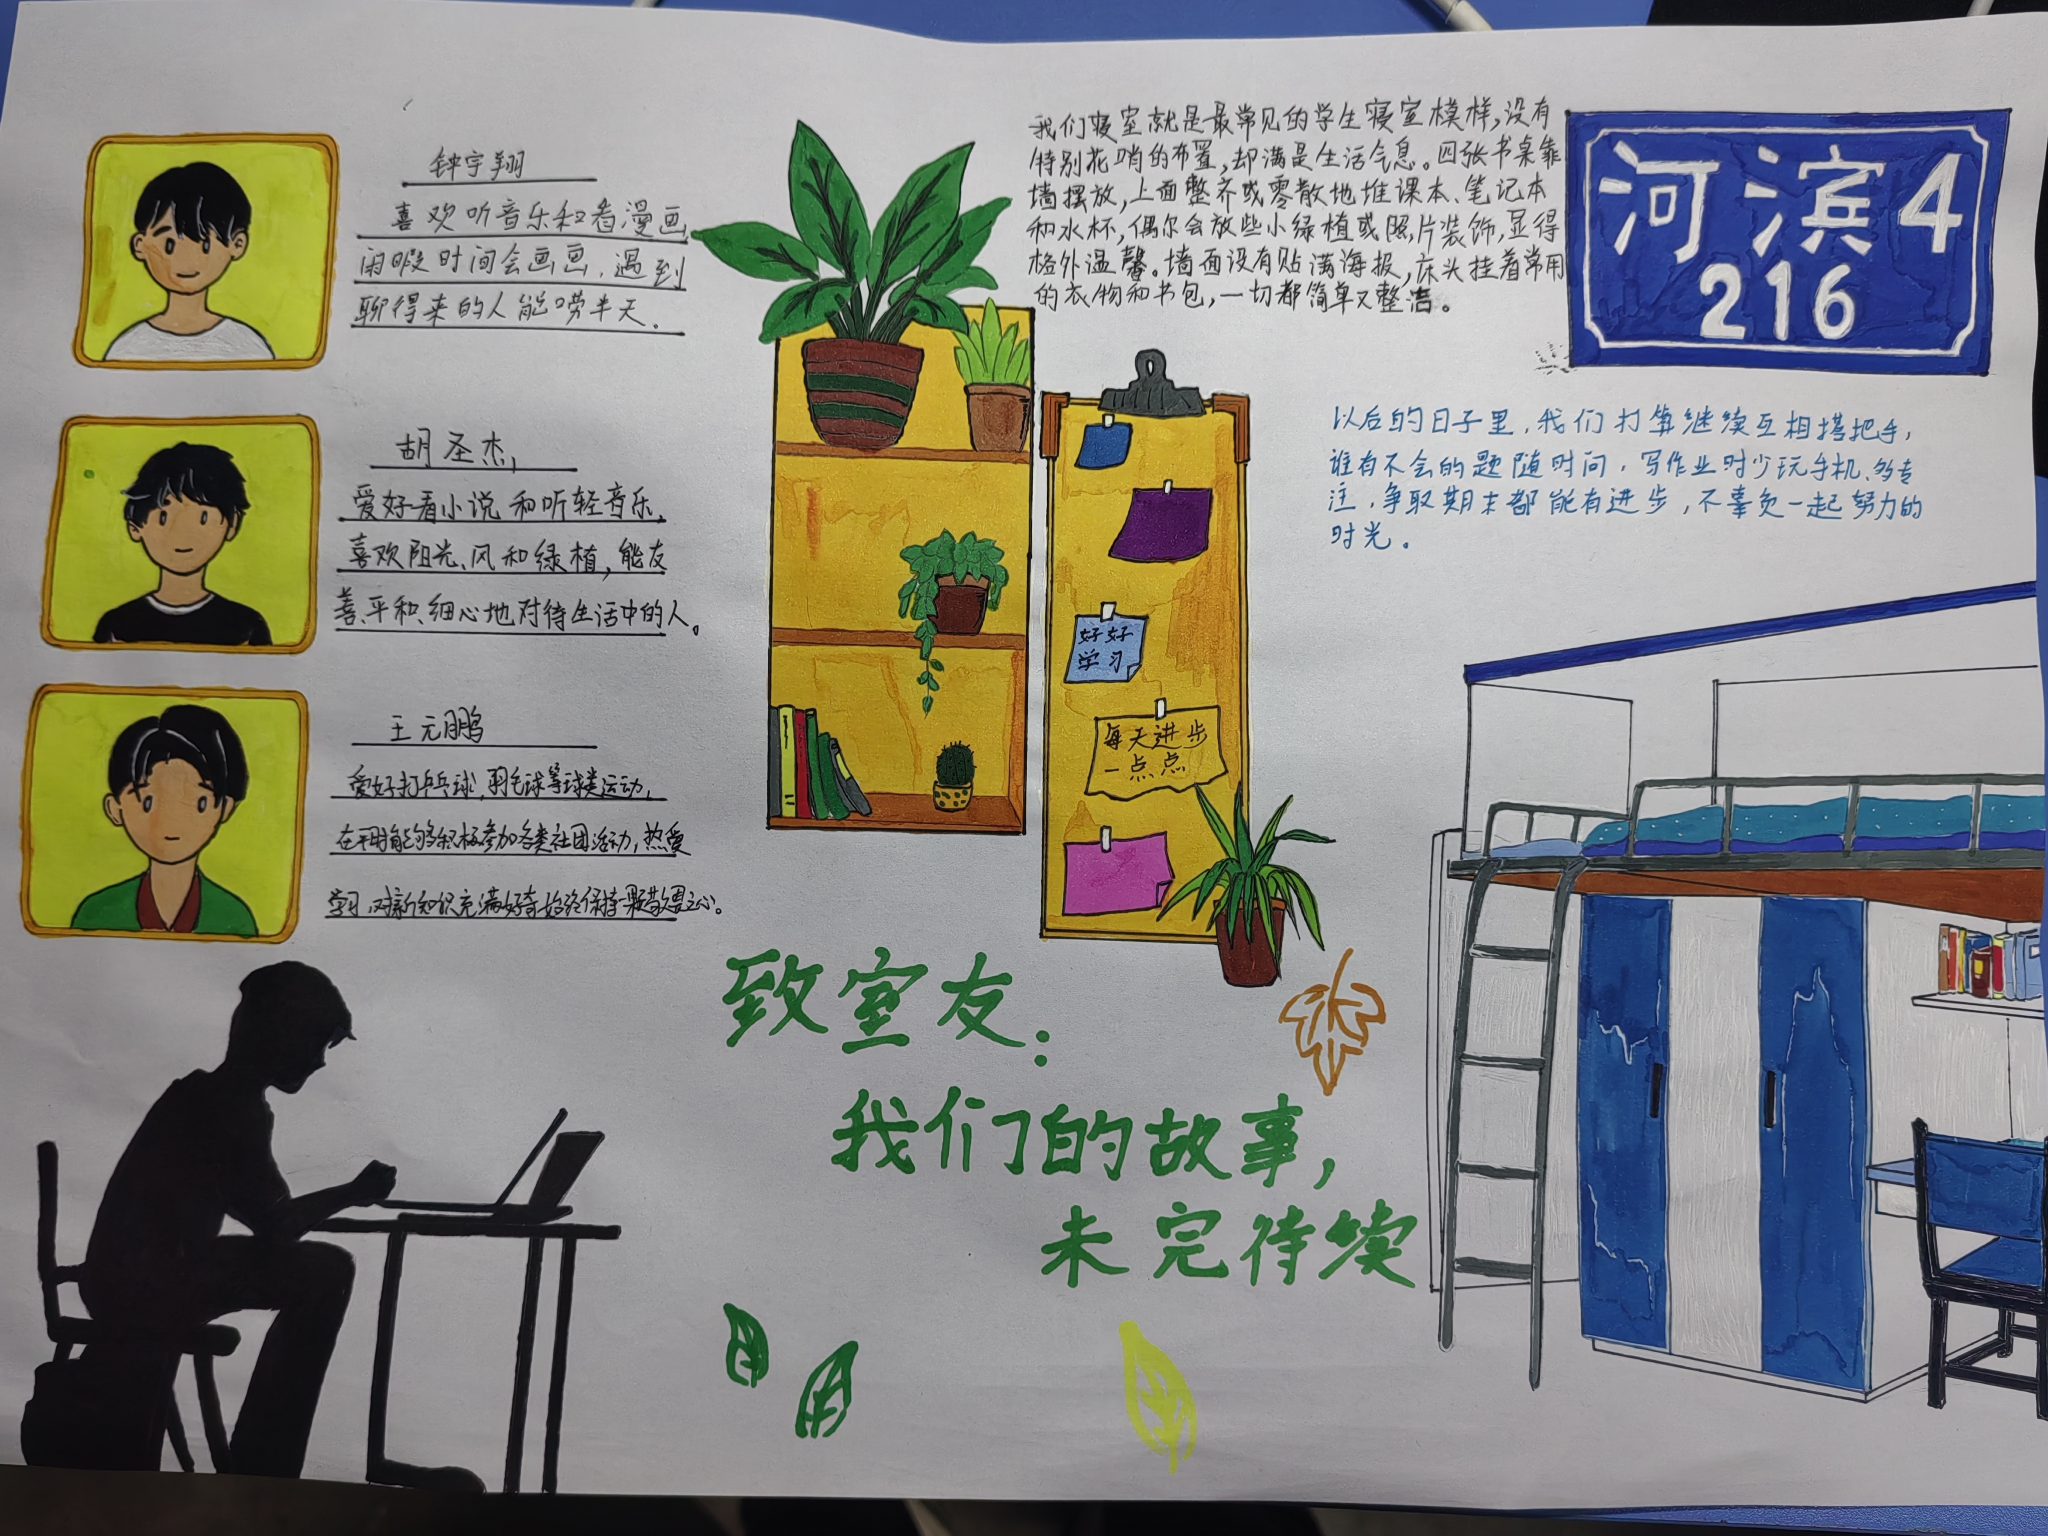 钟宇翔
喜欢听音乐和看漫画
闲暇时间会画画,遇到
聊得来的人能唠半天.
胡圣杰,
爱好看小说和听轻音乐,
喜欢阳光、风和绿植,能友
善、平和、细心地对待生活中的人。
王元鹏
爱好打乒乓球,羽毛球等球类运动,
在平时能够积极参加各类社团活动,热爱
学习,对新知识充满好奇始终保持一颗敬畏之心。
我们寝室就是最常见的学生寝室模样,没有
特别花哨的布置,却满是生活气息。四张书桌靠
墙摆放,上面整齐或零散地堆课本、笔记本
和水杯,偶尔会放些小绿植或照片装饰,显得
格外温馨。墙面没有贴满海报,床头挂着常用
的衣物和书包,一切都简单又整洁。
河滨4
216
以后的日子里,我们打算继续互相搭把手,
谁有不会的题随时问,写作业时少玩手机、多专
注,争取期末都能有进步,不辜负一起努力的
时光。
好好
学习
每天进步
一点点
致室友:
我们的故事,
未完待续